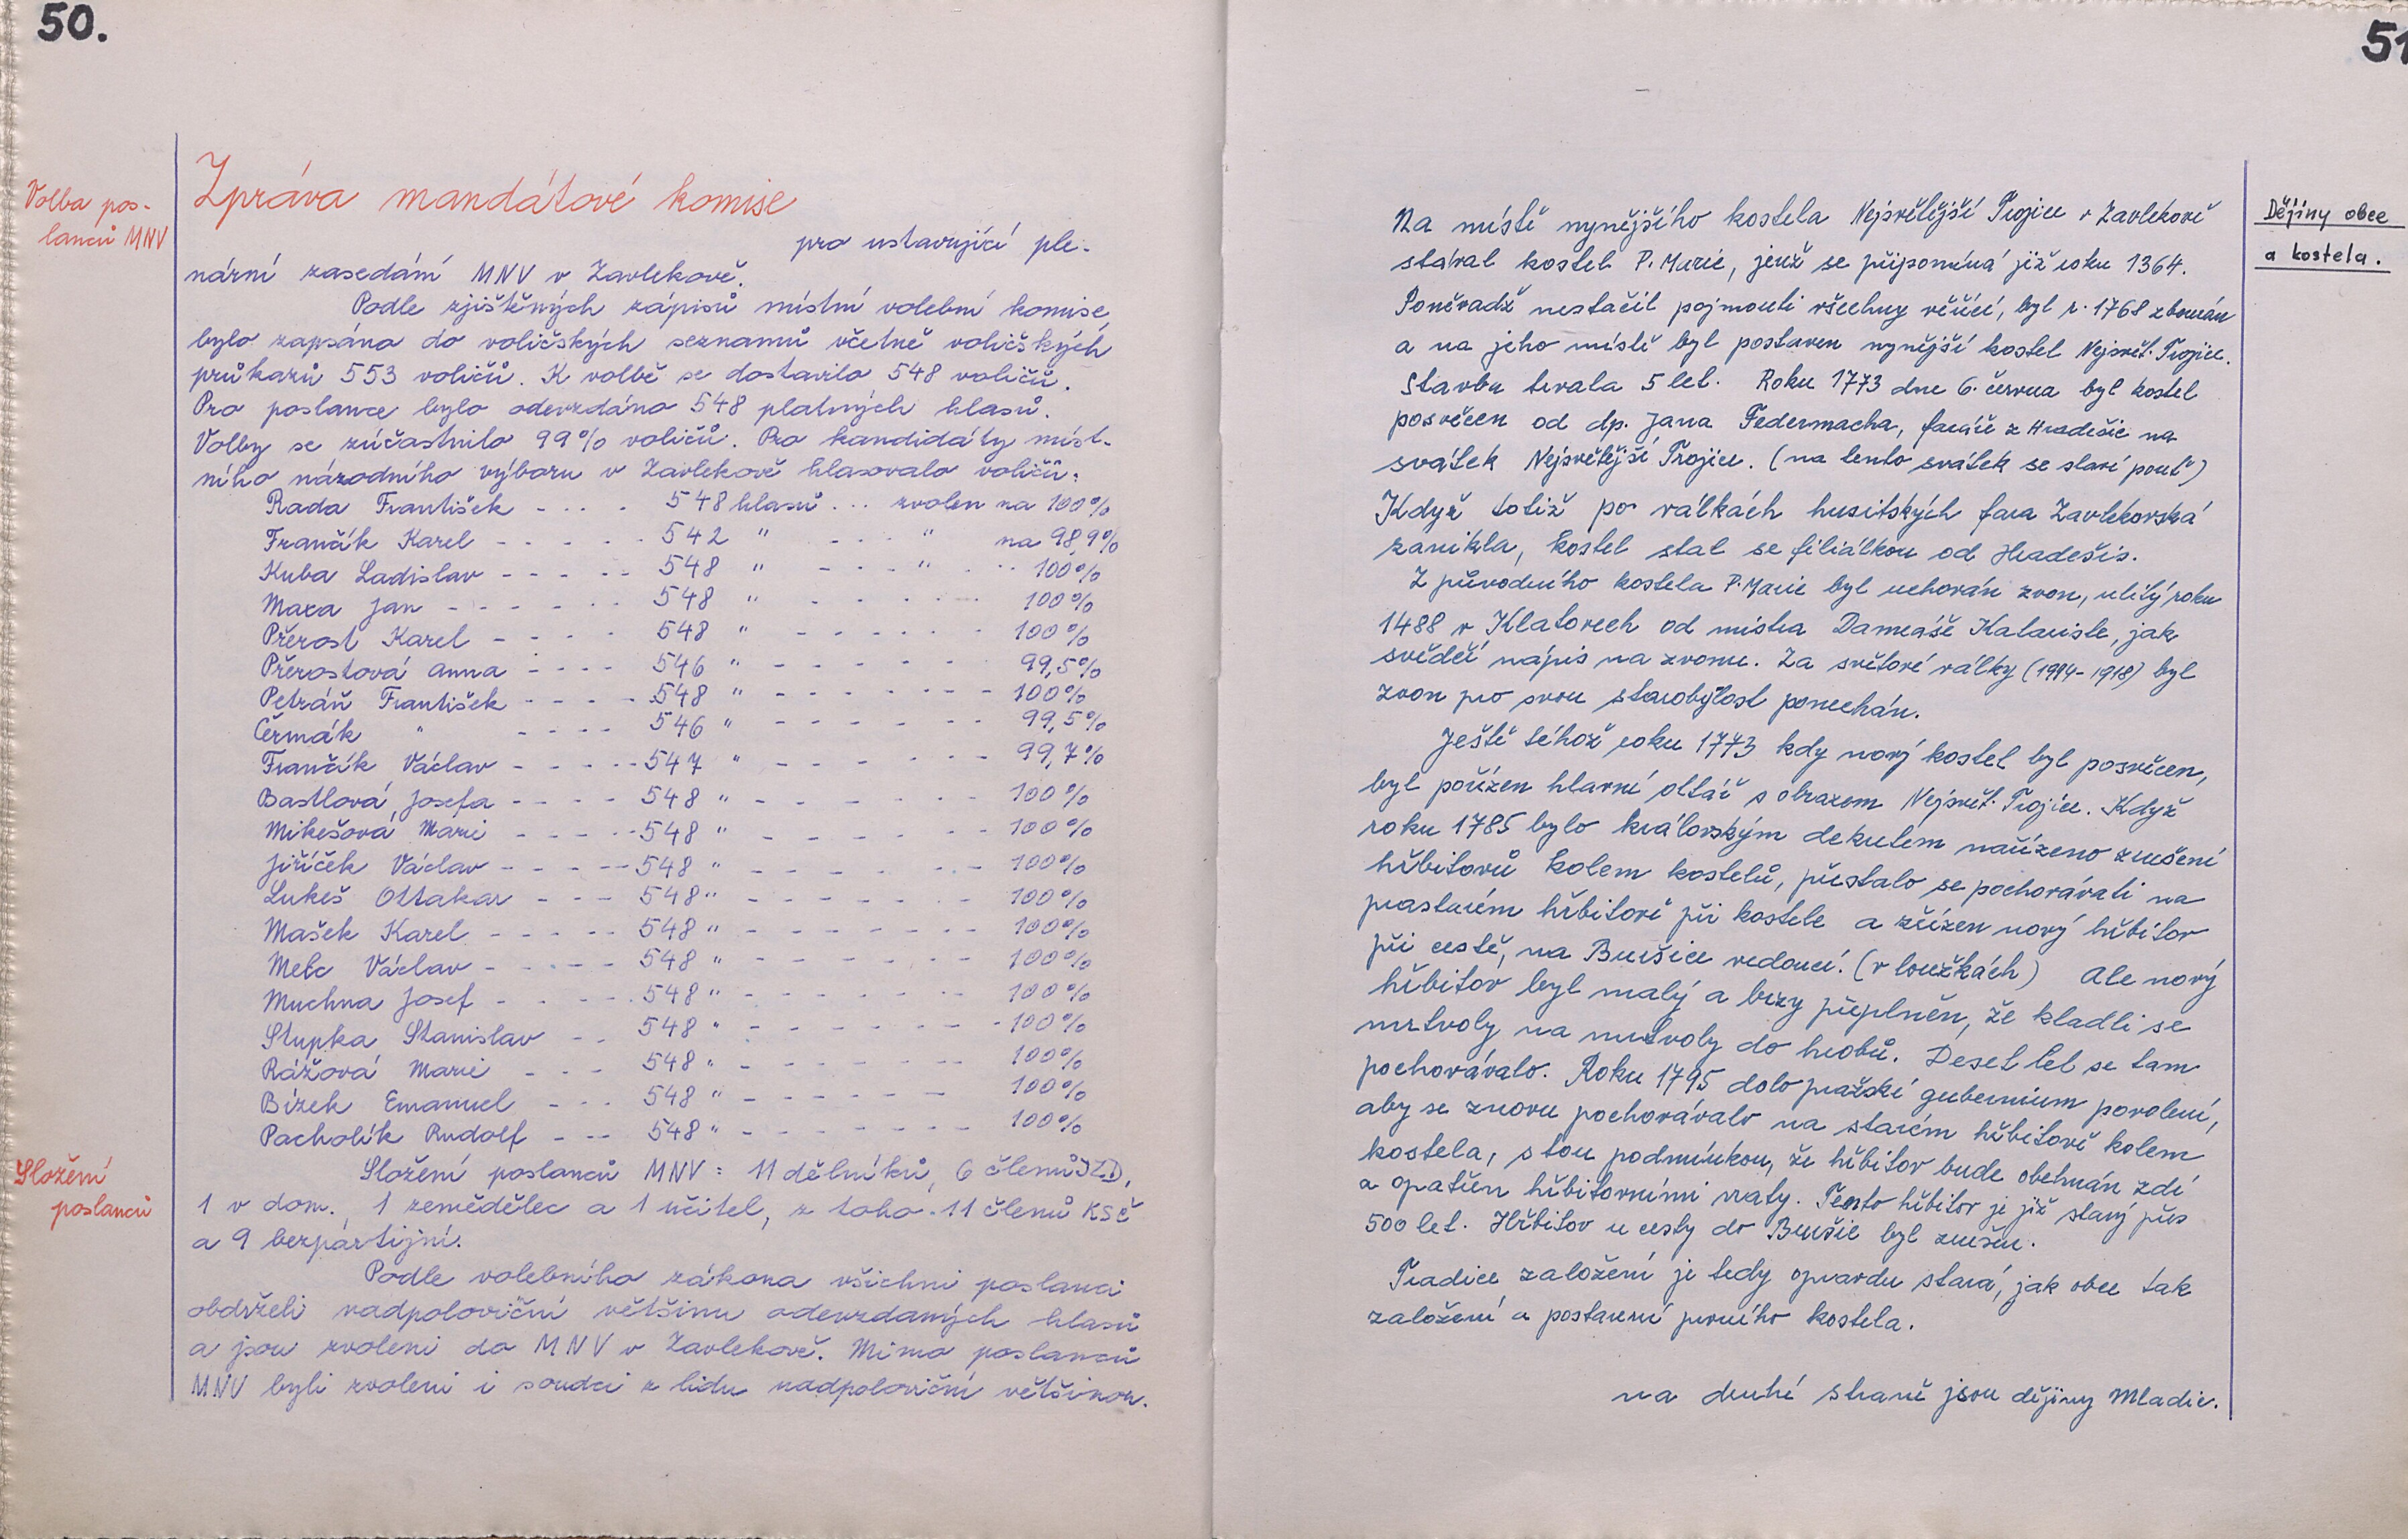 50.
Volba pos-
lanců MNV
Zpráva mandátové komise
pro ustavující ple-
nární zasedání MNV v Zavlekově.
Podle zjištěných zápisů místní volební komise
bylo zapsáno do voličských seznamů včetně voličských
průkazů 553 voličů. K volbě se dostavilo 548 voličů.
Pro poslance bylo odevzdáno 548 platných hlasů.
Volby se zúčastnilo 99% voličů. Pro kandidáty míst-
ního národního výboru v Zavlekově hlasovalo voličů:
Rada František - - - - 548 hlasů ... zvolen na 100%
Frančík Karel - - - - - 542 " - - - " na 98,9%
Kuba Ladislav - - - - - 548 " - - - " - - 100%
Maxa Jan - - - - - - 548 " - - - - - 100%
Přerost Karel - - - - 548 " - - - - - - 100%
Přerostová Anna - - - - 546 " - - - - - - 99,5%
Petráň František - - - - 548 " - - - - - - - 100%
Čermák " - - - - 546 " - - - - - - 99,5%
Frančík Václav - - - - - 547 " - - - - - - 99,7%
Bastlová Josefa - - - - 548 " - - - - - - 100%
Mikešová Marie - - - - - 548 " - - - - - - 100%
Jiříček Václav - - - - - 548 " - - - - - - 100%
Lukeš Ottakar - - - 548 " - - - - - - - 100%
Mašek Karel - - - - - 548 " - - - - - - - 100%
Melc Václav - - - - - 548 " - - - - - - - 100%
Muchna Josef - - - - - 548 " - - - - - - - 100%
Stupka Stanislav - - 548 " - - - - - - - 100%
Rážová Marie - - - 548 " - - - - - - 100%
Bízek Emanuel - - - 548 " - - - - - - 100%
Pacholík Rudolf - - - 548 " - - - - - - - 100%
Složení
poslanců
Složení poslanců MNV: 11 dělníků, 6 členů JZD,
1 v dom. 1 zemědělec a 1 učitel, z toho 11 členů KSČ
a 9 bezpartijní.
Podle volebního zákona všichni poslanci
obdrželi nadpoloviční většinu odevzdaných hlasů
a jsou zvoleni do MNV v Zavlekově. Mimo poslanců
MNV byli zvoleni i soudci z lidu nadpoloviční většinou.
51
Dějiny obce
a kostela.
Na místě nynějšího kostela Nejsvětější Trojice v Zavlekově
stával kostel P. Marie, jenž se připomíná již roku 1364.
Poněvadž nestačil pojmouti všechny věřící, byl r. 1768 zbourán
a na jeho místě byl postaven nynější kostel Nejsvět. Trojice.
Stavba trvala 5 let. Roku 1773 dne 6. června byl kostel
posvěcen od dp. Jana Federmacha, faráře z Hradešic na
svátek Nejsvětější Trojice. (na tento svátek se slaví pouť)
Když totiž po válkách husitských fara Zavlekovská
zanikla, kostel stal se filiálkou od Hradešic.
Z původního kostela P. Marie byl uchován zvon, ulitý roku
1488 v Klatovech od mistra Dameáše Kalariste, jak
svědčí nápis na zvonu. Za světové války (1914-1918) byl
zvon pro svou starobylost ponechán.
Ještě téhož roku 1773 kdy nový kostel byl posvěcen,
byl pořízen hlavní oltář s obrazem Nejsvět. Trojice. Když
roku 1785 bylo královským dekretem nařízeno zrušení
hřbitovů kolem kostelů, přestalo se pochovávati na
prastarém hřbitově při kostele a zřízen nový hřbitov
při cestě, na Buršice vedoucí. (v loužkách) Ale nový
hřbitov byl malý a brzy přeplněn, že kladli se
mrtvoly na mrtvoly do hrobů. Deset let se tam
pochovávalo. Roku 1795 dalo pražské gubernium povolení,
aby se znovu pochovávalo na starém hřbitově kolem
kostela, s tou podmínkou, že hřbitov bude obehnán zdí
a opatřen hřbitovními vraty. Tento hřbitov je již starý přes
500 let. Hřbitov u cesty do Buršic byl zrušen.
Tradice založení je tedy opravdu stará, jak obce tak
založení a postavení prvního kostela.
na druhé straně jsou dějiny Mladic.